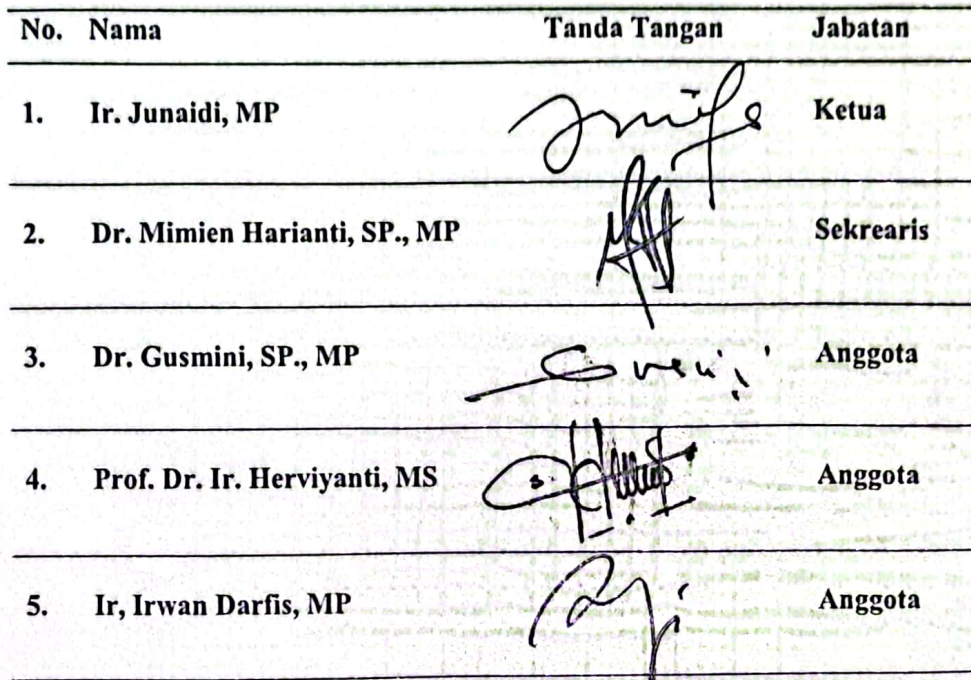 No. Nama Tanda Tangan Jabatan
1. Ir. Junaidi, MP Ketua
2. Dr. Mimien Harianti, SP., MP Sekrearis
3. Dr. Gusmini, SP., MP Anggota
4. Prof. Dr. Ir. Herviyanti, MS Anggota
5. Ir, Irwan Darfis, MP Anggota